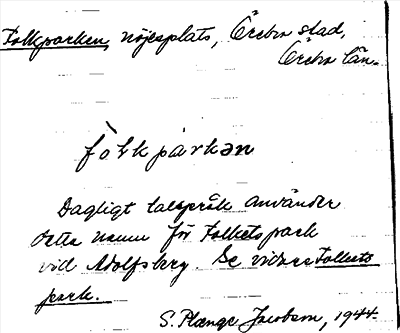 Folkparken, nöjesplats, Örebro stad,
Örebro län.
fòlkpàrkən
Dagligt talspråk använder
detta namn för Folkets park
vid Adolfsberg. Se vidare Folkets
park.
S. Plænge Jacobson, 1944.